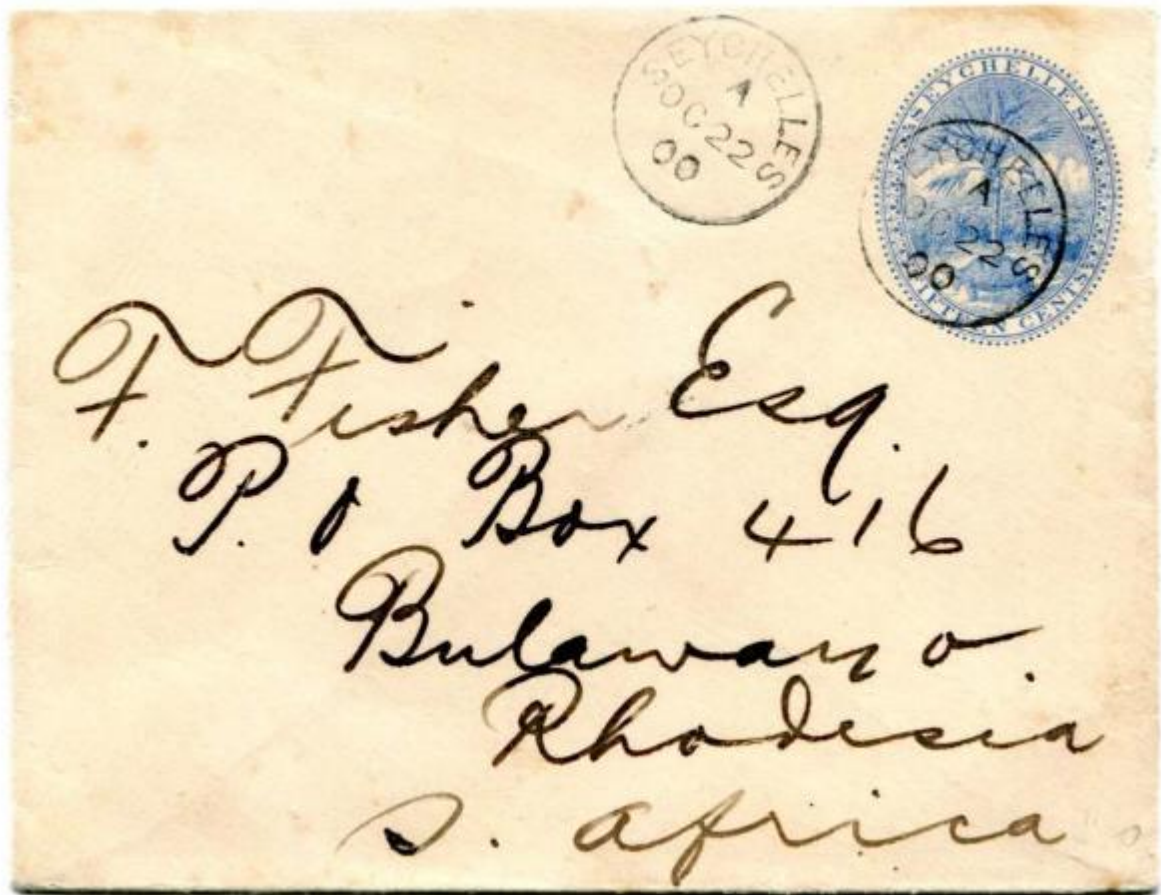 SEYCHELLES
A
OC 22
00
SEYCHELLES
FIFTEEN CENTS
SEYCHELLES
A
OC 22
00
F. Fisher Esq.
P. O Box 416
Bulawayo.
Rhodesia
S. Africa